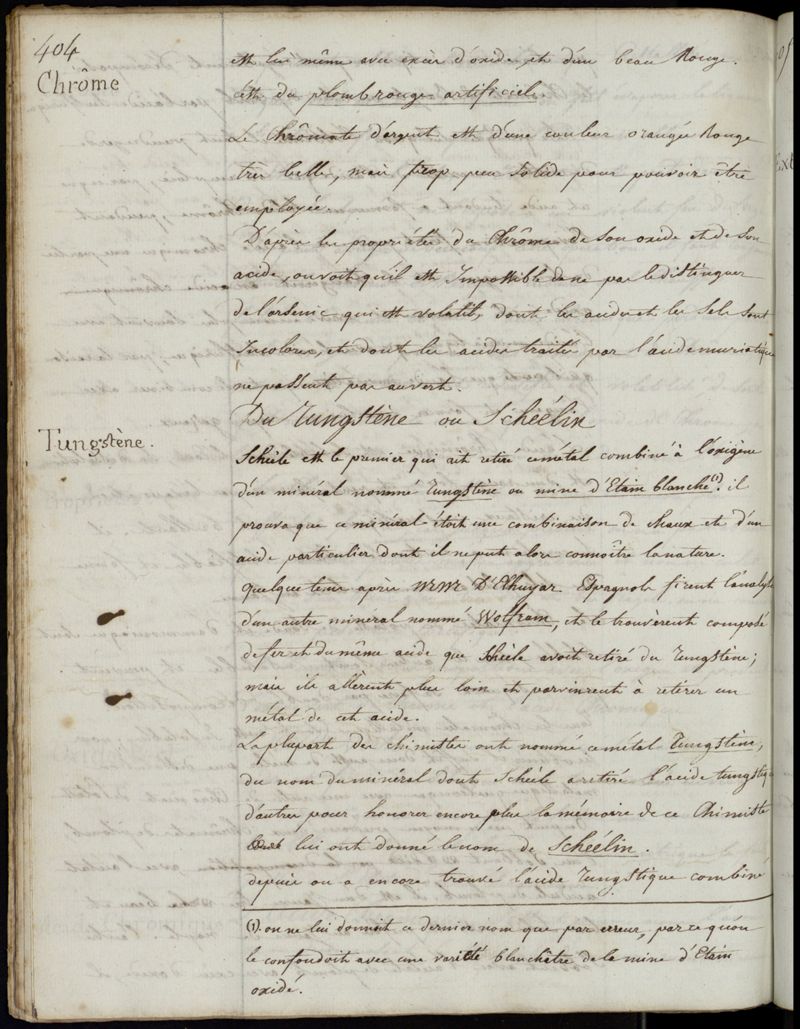 404
Chrôme
est lui même avec excès d'oxide et d'un beau Rouge.
C'est du plomb rouge artificiel.
Le Chrômate d'argent est d'une couleur orangée Rouge
très belle, mais trop peu solide pour pouvoir être
employée.
D'après les propriétés du Chrôme de son oxide et de son
acide, on voit qu'il est Impossible de ne pas le distinguer
de l'arsenic qui est volatil, dont les acides et les Sels sont
Incolores, et dont les acides traités par l'acide muriatique
ne passent pas au vert.
Du Tungstène ou Schéélin
Tungstène.
Schéele est le premier qui ait retiré ce métal combiné à l'oxigène
d'un minéral nommé Tungstène ou mine d'Etain blanche (1). il
prouva que ce minéral étoit une combinaison de chaux et d'un
acide particulier dont il ne put alors connoître la nature.
quelque tems après MrMr D'Elhuyar Espagnols firent l'analyse
d'un autre minéral nommé Wolfram, et le trouvèrent composé
de fer et du même acide que Schéele avoit retiré du Tungstène;
mais ils allèrent plus loin et parvinrent à retirer un
métal de cet acide.
La plupart des chimistes ont nommé ce métal Tungstène,
du nom du minéral dont Schéele a retiré l'acide tungstique
d'autres pour honorer encore plus la mémoire de ce Chimiste
lui ont donné le nom de Schéélin.
depuis on a encore trouvé l'acide Tungstique combiné
(1). on ne lui donnoit ce dernier nom que par erreur, parce qu'on
le confondoit avec une variété blanchâtre de la mine d'Etain
oxidé.